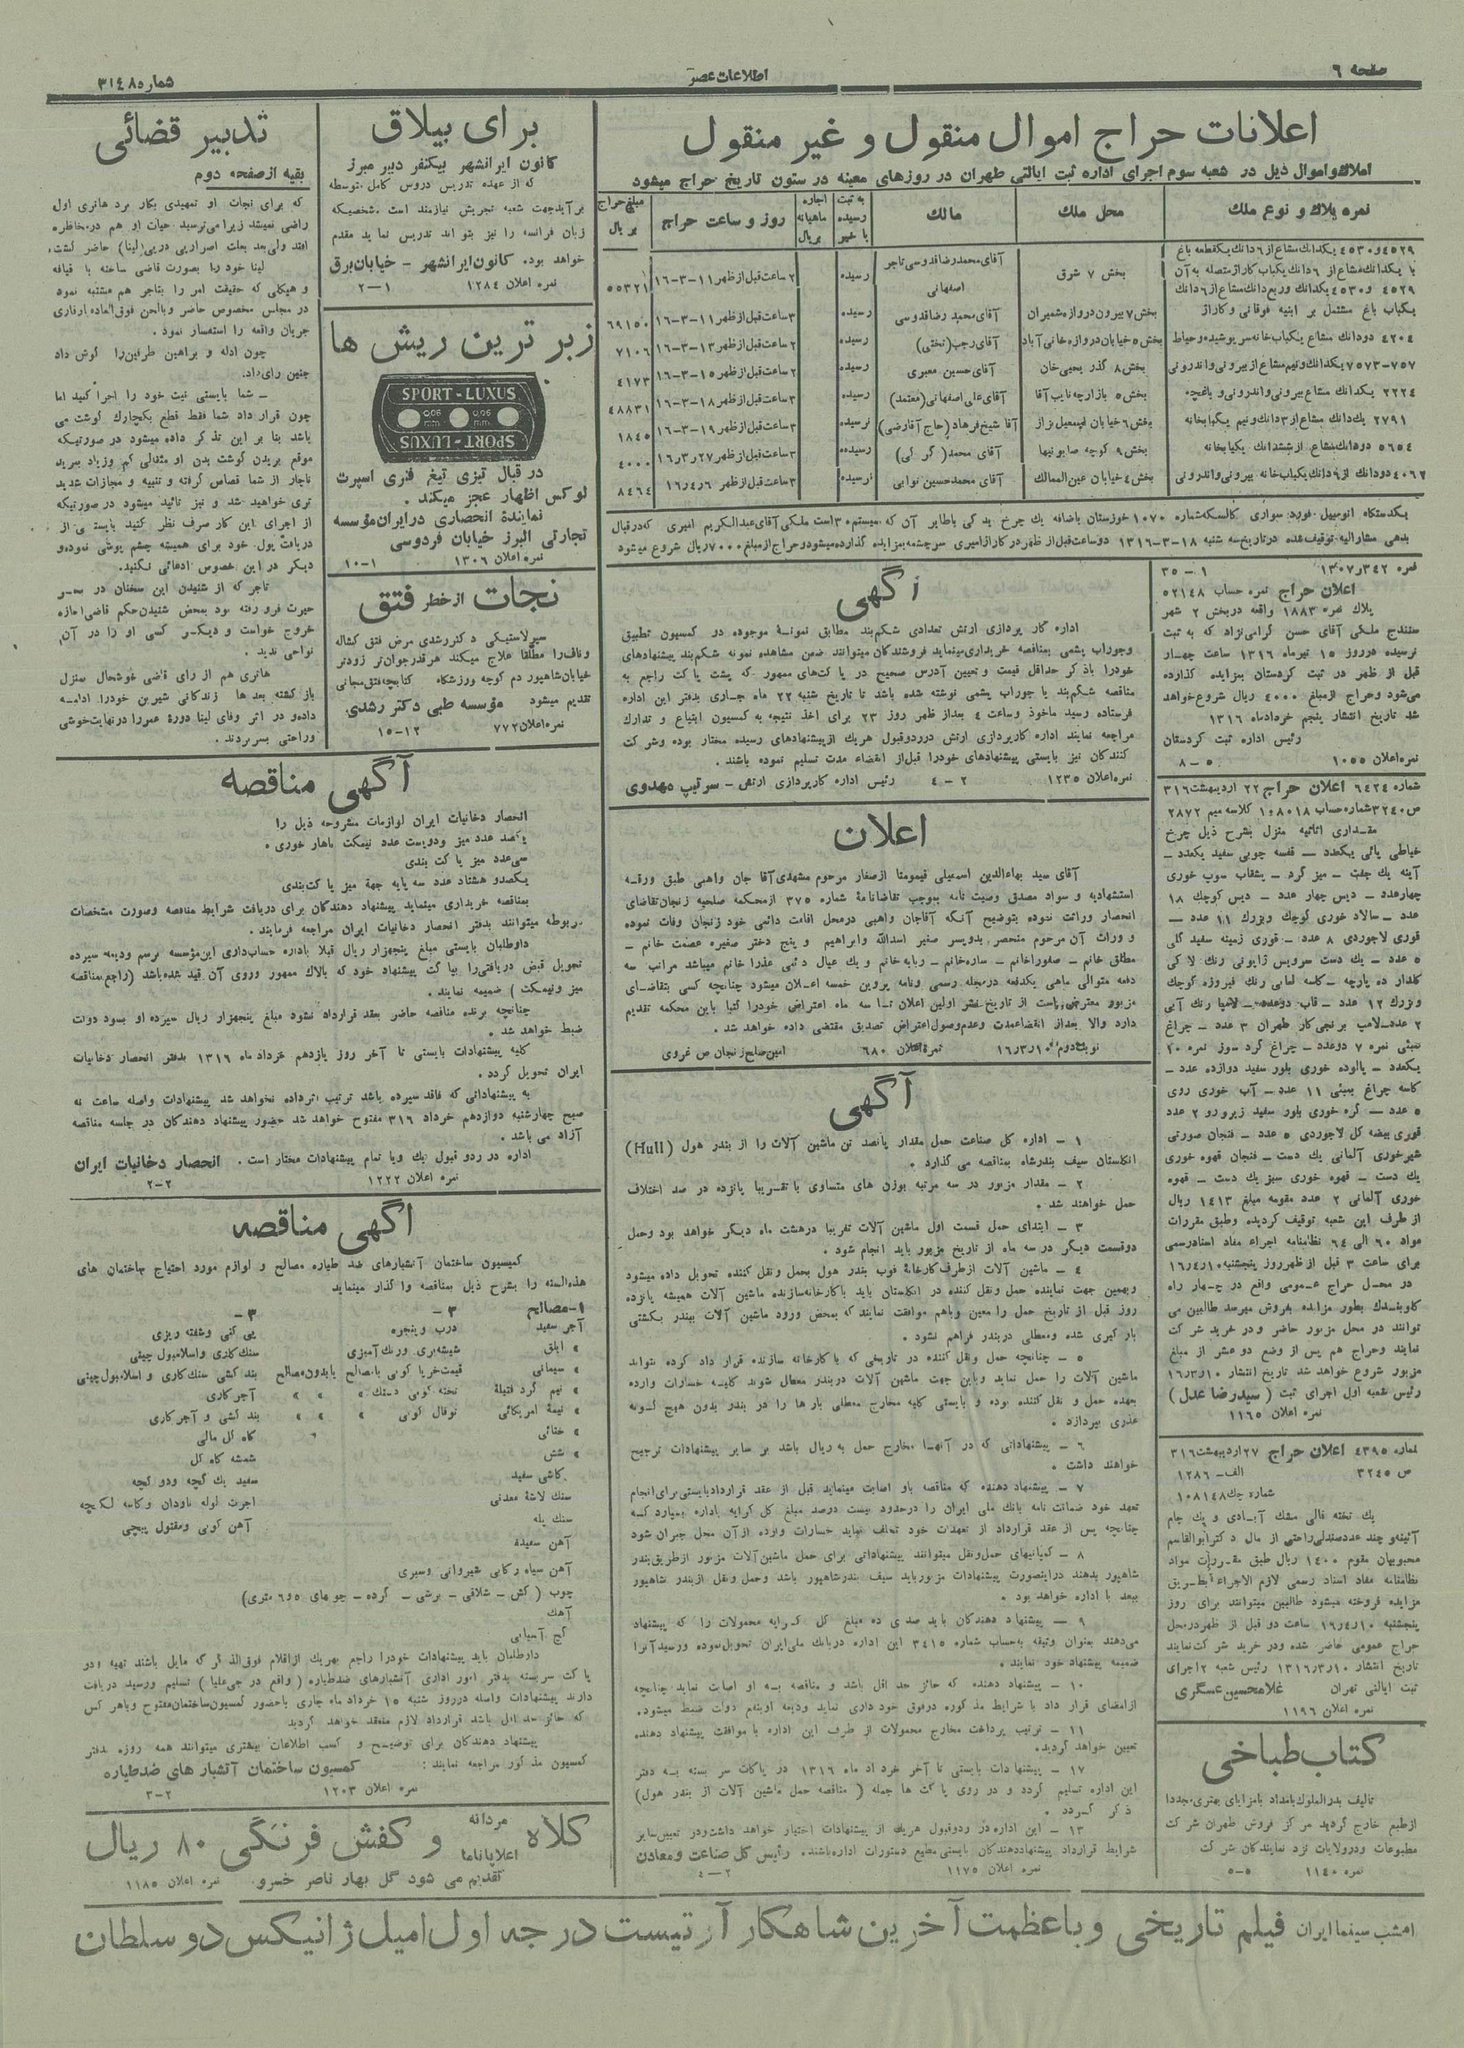 صفحه ٦
اطلاعات عصر
شماره ٣١٤٨
اعلانات حراج اموال منقول و غیر منقول
املاک و اموال ذیل در شعبه سوم اجرای اداره ثبت ایالتی طهران در روزهای معینه در ستون تاریخ حراج میشود
نمره پلاك و نوع ملك
محل ملك
مالك
به ثبت رسیده یا خیر
اجاره ماهیانه بریال
روز و ساعت حراج
مبلغ حراج بریال
بخش ۷ شرق
آقای محمدرضا قدوسی تاجر اصفهانی
رسیده
۲ ساعت قبل از ظهر ۱۱-۳-۱۶
۵۵۳۲۱
بخش ۷ بیرون دروازه شمیران
آقای محمد رضا قدوسی
رسیده
۳ ساعت قبل از ظهر ۱۱-۳-۱۶
۶۹۱۵۰
٤٢٠٤ دودانك مشاع یکباب خانه سرپوشیده و حیاط
بخش ۵ خیابان دروازه خانی آباد
رسیده
۲ ساعت قبل از ظهر ۱۳-۳-۱۶
۷۱۰۶
۷۵۷-۷۵۷۳ یکدانك ونیم مشاع از بیرونی و اندرونی
بخش ۸ گذر یحیی خان
آقای حسین معیری
رسیده
۲ ساعت قبل از ظهر ۱۵-۳-۱۶
٤١٧٣
۲۲۲٤ یکدانك مشاع بیرونی و اندرونی و باغچه
بخش ۵ بازارچه نایب آقا
آقای علی اصفهانی (معتمد)
رسیده
۳ ساعت قبل از ظهر ۱۸-۳-۱۶
٤٨٨٣١
۲۷۹۱ یك دانك مشاع از ۳ دانك ونیم یکبابخانه
بخش ۶ خیابان اسمعیل بزاز
آقا شیخ فرهاد (حاج آقارضی)
نرسیده
۳ ساعت قبل از ظهر ۱۹-۳-۱۶
۱۸٤۵
۵٦۵٤ دودانك مشاع از ششدانك یکبابخانه
بخش ۹ کوچه صابونیها
آقای محمد (گرگی)
رسیده
۳ ساعت قبل از ظهر ۲۷ر۳ر۱۶
٤۰۰۰
٤۰٦۲ دودانك از ۶ دانك یکباب خانه بیرونی و اندرونی
بخش ٤ خیابان عین الممالك
آقای محمدحسین نوابی
نرسیده
۳ ساعت قبل از ظهر ٦ر٤ر١٦
٨٤٦٤
یکدستگاه اتومبیل فورد سواری کالسکه شماره ۱۰۷۰ خوزستان باضافه یك چرخ یدکی باطایر آن که سیستم ۳۰ است ملکی آقای عبدالکریم امیری که در قبال
بدهی مشارالیه توقیف شده در تاریخ سه شنبه ۱۸-۳-۱۳۱۶ دو ساعت قبل از ظهر در کاراژ امیری سرچشمه بمزایده گذارده میشود و حراج از مبلغ ۷۰۰۰ ریال شروع میشود
نمره ۳٤۲ر۱۳۰۷ ۱-۳۵
اعلان حراج نمره حساب ۵۲۱٤۸
پلاك نمره ۱۸۸۳ واقعه در بخش ۲ شهر
سنندج ملکی آقای حسن گرامی نژاد که به ثبت
نرسیده در روز ۱۵ تیر ماه ۱۳۱٦ ساعت چهار
قبل از ظهر در ثبت کردستان بمزایده گذارده
می‌شود و حراج از مبلغ ٤۰۰۰ ریال شروع خواهد
شد تاریخ انتشار پنجم خرداد ماه ۱۳۱٦
رئیس اداره ثبت کردستان
نمره اعلان ۱۰۵۵ ۵-۸
شماره ٦٤۲٤ اعلان حراج ۲۲ اردیبهشت ۳۱٦
مقداری اثاثیه منزل بشرح ذیل چرخ
خیاطی پائی یکعدد - قفسه چوبی سفید یکعدد -
آینه یك جفت - میز گرد - بشقاب سوپ خوری
چهار عدد - دیس چهار عدد - دیس کوچك ۱۸
عدد - سالاد خوری کوچك وبزرك ۱۱ عدد -
قوری لاجوردی ۸ عدد - قوری زمینه سفید گلی
۵ عدد - یك دست سرویس ژاپونی رنك لاکی
وبزرك ۱۲ عدد - قاب دوعدد - لامپا رنك آبی
۲ عدد - لامپ برنجی کار طهران ۳ عدد - چراغ
نمبئی نمره ۷ دوعدد - چراغ گرد سوز نمره ۲۰
یکعدد - پالوده خوری بلور سفید دوازده عدد -
کاسه چراغ بمبئی ۱۱ عدد - آب خوری روی
۵ عدد - کره خوری بلور سفید زیر و رو ۲ عدد
قوری بیضه گل لاجوردی ۵ عدد - فنجان صورتی
شیرخوری آلمانی یك دست - فنجان قهوه خوری
یك دست - قهوه خوری سبز یك دست - قهوه
خوری آلمانی ۲ عدد مقومه مبلغ ۱٤۱۳ ریال
از طرف این شعبه توقیف گردیده وطبق مقررات
مواد ٦۰ الی ٦٤ نظامنامه اجراء مفاد اسناد رسمی
برای ساعت ۳ قبل از ظهر روز پنجشنبه ۱۰ر٤ر۱٦
در محل حراج عمومی واقع در چهار راه
کنت بطور مزایده بفروش میرسد طالبین می
توانند در محل مزبور حاضر و در خرید شرکت
نمایند وحراج هم پس از وضع دو عشر از مبلغ
مزبور شروع خواهد شد تاریخ انتشار ۱۰ر۳ر۱٦
رئیس شعبه اول اجرای ثبت (سیدرضا عدل)
نمره اعلان ۱۱٦۵
نمره ٤۳۹۵ اعلان حراج ۲۷ اردیبهشت ۳۱٦
ص ۳۲٤۵ الف- ۱۲۸٦
شماره چك ۱۰۸۱٤۸
یك تخته قالی مشك آبادی و یك جام
آئینه و چند عدد صندلی راحتی از مال دکتر ابوالقاسم
محبوبیهان مقوم ۱٤۰۰ ریال طبق مقررات مواد
نظامنامه مفاد اسناد رسمی لازم الاجراء بطریق
مزایده فروخته میشود طالبین میتوانند برای روز
پنجشنبه ۱۰ر٤ر۱٦ ساعت دو قبل از ظهر در محل
حراج عمومی حاضر شده ودر خرید شرکت نمایند
تاریخ انتشار ۱۰ر۳ر۱۳۱٦ رئیس شعبه ۲ اجرای
ثبت ایالتی تهران غلامحسین عسگری
نمره اعلان ۱۱۹٦
کتاب طباخی
تالیف بدرالملوك بامداد با مزایای بهتری مجددا
از طبع خارج گردید مرکز فروش طهران شرکت
مطبوعات و درولایات نزد نمایندگان شرکت
نمره ۱۱٤۰ ۵-۵
آگهی
اداره کارپردازی ارتش تعدادی شکم‌بند مطابق نمونهٔ موجوده در کمسیون تطبیق
وجوراب پشمی بمناقصه خریداری مینماید فروشندگان میتوانند ضمن مشاهده نمونه شکم‌بند پیشنهادهای
خودرا باذکر حداقل قیمت و تعیین آدرس صحیح در پاکت‌های ممهور که پشت پاکت راجع به
مناقصه شکم‌بند یا جوراب پشمی نوشته شده باشد تا تاریخ شنبه ۲۲ ماه جاری بدفتر این اداره
فرستاده رسید ماخوذ وساعت ٤ بعداز ظهر روز ۲۳ برای اخذ نتیجه به کمسیون ابتیاع و تدارك
مراجعه نمایند اداره کارپردازی ارتش در ردوقبول هریك از پیشنهادهای رسیده مختار بوده وشرکت
کنندگان نیز بایستی پیشنهادهای خودرا قبل از انقضاء مدت تسلیم نموده باشند .
نمره اعلان ۱۲۳۵ ۲-٤ رئیس اداره کارپردازی ارتش - سرتیپ مهدوی
اعلان
آقای سید بهاءالدین اسمعیلی قیمومتا از صغار مرحوم مشهدی آقا جان واهبی طبق ورقه
استشهادیه و سواد مصدق وصیت نامه بموجب تقاضانامهٔ شماره ۳۷۵ از محکمه صلحیه زنجان تقاضای
انحصار وراثت نموده بتوضیح آنکه آقاجان واهبی در محل اقامت دائمی خود زنجان وفات نموده
و وراث آن مرحوم منحصر بدو پسر صغیر اسدالله وابراهیم و پنج دختر صغیره عصمت خانم -
مطلق خانم - صغورا خانم - ساره خانم - ربابه خانم و یك عیال دائمی عذرا خانم میباشد مراتب سه
دفعه متوالی ماهی یکدفعه در مجله رسمی ونامه پروین خمسه اعلان میشود چنانچه کسی بتقاضای
مزبور معترض است از تاریخ نشر اولین اعلان تا سه ماه اعتراض خودرا کتبا باین محکمه تقدیم
دارد والا بعداز انقضاء مدت وعدم وصول اعتراض تصدیق مقتضی داده خواهد شد .
نوبت دوم ۱۰ر۳ر۱٦ نمره اعلان ٦۸۰ امین صلح زنجان ص غروی
آگهی
۱ - اداره کل صناعت حمل مقدار پانصد تن ماشین آلات را از بندر هول (Hull)
انگلستان سیف بندرشاه بمناقصه می گذارد .
۲ - مقدار مزبور در سه مرتبه بوزن های متساوی با تقریبا پانزده در صد اختلاف
حمل خواهند شد .
۳ - ابتدای حمل قسمت اول ماشین آلات تقریبا در هشت ماه دیگر خواهد بود وحمل
دوقسمت دیگر در سه ماه از تاریخ مزبور باید انجام شود .
٤ - ماشین آلات از طرف کارخانهٔ فوب بندر هول بحمل ونقل کننده تحویل داده میشود
وبهمین جهت نماینده حمل ونقل کننده در انگلستان باید باکارخانه سازنده ماشین آلات همیشه پانزده
روز قبل از تاریخ حمل را معین وباهم موافقت نمایند که بمحض ورود ماشین آلات ببندر بکشتی
بارگیری شده ومعطلی در بندر فراهم نشود .
۵ - چنانچه حمل ونقل کننده در تاریخی که باکارخانه سازنده قرار داد کرده نتواند
ماشین آلات را حمل نماید وباین جهت ماشین آلات در بندر معطل شوند کلیه خسارات وارده
بعهده حمل و نقل کننده بوده و بایستی کلیه مخارج معطلی بارها را در بندر بدون هیچ گونه
عذری بپردازد .
٦ - پیشنهاداتی که در آنها مخارج حمل به ریال باشد بر سایر پیشنهادات ترجیح
خواهند داشت .
۷ - پیشنهاد دهنده که مناقصه باو اصابت مینماید قبل از عقد قرارداد بایستی برای انجام
تعهد خود ضمانت نامه بانك ملی ایران را درحدود بیست درصد مبلغ کل کرایه باداره بسپارد که
چنانچه پس از عقد قرارداد از تعهدات خود تخلف نماید خسارات وارده از آن محل جبران شود
۸ - کمپانیهای حمل ونقل میتوانند پیشنهاداتی برای حمل ماشین آلات مزبور از طریق بندر
شاهپور بدهند در اینصورت پیشنهادات مزبور باید سیف بندر شاهپور باشد وحمل ونقل از بندر شاهپور
ببعد با اداره خواهد بود .
۹ - پیشنهاد دهندگان باید صدی ده مبلغ کل کرایه محمولات را که پیشنهاد
می‌دهند بعنوان وثیقه به حساب شماره ۳٤۱۵ این اداره دربانك ملی ایران تحویل نموده ورسید آنرا
ضمیمه پیشنهاد خود نمایند .
۱۰ - پیشنهاد دهنده که حائز حد اقل باشد و مناقصه به او اصابت نماید چنانچه
از امضای قرار داد با شرایط مذکوره درفوق خود داری نماید ودیعه او بنفع دولت ضبط میشود .
۱۱ - ترتیب پرداخت مخارج محمولات از طرف این اداره با موافقت پیشنهاد دهنده
تعیین خواهد گردید .
۱۲ - پیشنهادات بایستی تا آخر خرداد ماه ۱۳۱٦ در پاکات سر بسته به دفتر
این اداره تسلیم گردد و در روی پاکت ها جمله (مناقصه حمل ماشین آلات از بندر هول)
ذکر گردد .
۱۳ - این اداره در ردوقبول هریك از پیشنهادات اختیار خواهد داشت ودر تعیین سایر
شرایط قرارداد پیشنهاددهندگان بایستی مطیع دستورات اداره باشند . رئیس کل صناعت ومعادن
نمره اعلان ۱۱۷۵ ۲-٤
برای ییلاق
کانون ایرانشهر بیکنفر دبیر مبرز
که از عهده تدریس دروس کامل متوسطه
برآید جهت شعبه تجریش نیازمند است . شخصیکه
زبان فرانسه را نیز بتواند تدریس نماید مقدم
خواهد بود . کانون ایرانشهر - خیابان برق
نمره اعلان ۱۲۸٤ ۱-۲
زبر ترین ریش ها
SPORT-LUXUS
0,06 mm
0,06 mm
SPORT-LUXUS
در قبال تیزی تیغ فنری اسپرت
لوکس اظهار عجز میکند .
نمایندهٔ انحصاری در ایران مؤسسه
تجارتی البرز خیابان فردوسی
نمره اعلان ۱۳۰٦ ۱-۱۰
نجات از خطر فتق
سیرلاستیکی دکتر رشدی مرض فتق کشاله
وناف را مطلقا علاج میکند هرقدر جوان تر زودتر
خیابان شاهپور دم کوچه ورزشگاه کتابچه فتق مجانی
تقدیم میشود مؤسسه طبی دکتر رشدی
نمره اعلان ۷۷۲ ۱۲-۱۵
تدبیر قضائی
بقیه از صفحه دوم
که برای نجات او تمهیدی بکار برد هانری اول
راضی نمیشد زیرا می‌ترسید حیات او هم در مخاطره
افتد ولی بعد بعلت اصرار پی درپی (لینا) حاضر گشت .
لینا خود را بصورت قاضی ساخته با قیافه
و هیکلی که حقیقت امر را بتاجر هم مشتبه نمود
در مجلس مخصوص حاضر وبالحن فوق العاده وقاری
جریان واقعه را استفسار نمود .
چون ادله و براهین طرفین را گوش داد
چنین رای داد .
- شما بایستی نیت خود را اجرا کنید اما
چون قرار داد شما فقط قطع یکچارك گوشت می
باشد بنا بر این تذکر داده میشود در صورتیکه
موقع بریدن گوشت بدن او مثقالی کم وزیاد ببرید
ناچار از شما قصاص گرفته و تنبیه و مجازات شدید
تری خواهید شد و نیز تائید میشود در صورتیکه
از اجرای این کار صرف نظر کنید بایستی از
دریافت پول خود برای همیشه چشم پوشی نموده و
دیگر در این خصوص ادعائی نکنید .
تاجر که از شنیدن این سخنان در بحر
حیرت فرو رفته بود بمحض شنیدن حکم قاضی اجازه
خروج خواست و دیگر کسی او را در آن
نواحی ندید .
هانری هم از رای قاضی خوشحال بمنزل
بازگشته بعد ها زندگانی شیرین خودرا ادامه
داده و در اثر وفای لینا دورهٔ عمر را در نهایت خوشی
وراحتی بسر بردند .
آگهی مناقصه
انحصار دخانیات ایران لوازمات مشروحه ذیل را
یکصد عدد میز ودویست عدد نیمکت ناهار خوری .
سی عدد میز پاکت بندی
یکصدو هشتاد عدد سه پایه جهة میز پاکت بندی
بمناقصه خریداری مینماید پیشنهاد دهندگان برای دریافت شرایط مناقصه وصورت مشخصات
مربوطه میتوانند بدفتر انحصار دخانیات ایران مراجعه فرمایند .
داوطلبان بایستی مبلغ پنجهزار ریال قبلا باداره حسابداری این مؤسسه برسم ودیعه سپرده
تحویل قبض دریافتی را بپاکت پیشنهاد خود که بالاك ممهور وروی آن قید شده باشد (راجع بمناقصه
میز ونیمکت) ضمیمه نمایند .
چنانچه برنده مناقصه حاضر بعقد قرارداد نشود مبلغ پنجهزار ریال سپرده او بسود دولت
ضبط خواهد شد .
کلیه پیشنهادات بایستی تا آخر روز یازدهم خرداد ماه ۱۳۱٦ بدفتر انحصار دخانیات
ایران تحویل گردد .
به پیشنهاداتی که فاقد سپرده باشد ترتیب اثر داده نخواهد شد پیشنهادات واصله ساعت نه
صبح چهارشنبه دوازدهم خرداد ۳۱٦ مفتوح خواهد شد حضور پیشنهاد دهندگان در جلسه مناقصه
آزاد می باشد .
اداره در ردو قبول یك ویا تمام پیشنهادات مختار است . انحصار دخانیات ایران
نمره اعلان ۱۲۲۲ ۲-۲
آگهی مناقصه
کمیسیون ساختمان آتشبارهای ضد طیاره مصالح و لوازم مورد احتیاج ساختمان های
هذه‌السنه را بشرح ذیل بمناقصه واگذار مینماید
۱-مصالح
آجر سفید
» ابلق
» سیمانی
» نیم گرد فتیلهٔ
» نیمهٔ امریکائی
» ختائی
» شش
کاشی سفید
سنك لاشهٔ معدنی
سنك پله
آهن سفیدهٔ
آهن سیاه رکابی شیروانی وسپری
آهك
گچ آسیابی
۲-
درب وپنجره
شیشه‌بری ورنك آمیزی
قیمت خرپا کوبی بامصالح یا بدون مصالح
تخته کوبی دستك » » »
توفال کوبی » » »
۳-
پی کنی وشفته ریزی
سنك کاری واسلامبول چینی
بند کشی سنك کاری و اسلامبول چینی
آجر کاری
بند کشی و آجر کاری
کاه گل مالی
شمشه کاه گل
سفید یك گچه ودو گچه
اجرت لوله ناودان وکاسه لگنچه
آهن کوبی ومفتول پیچی
داوطلبان باید پیشنهادات خودرا راجع بهریك از اقلام فوق الذکر که مایل باشند تهیه و در
پاکت سربسته بدفتر امور اداری آتشبارهای ضد طیاره (واقع در جی علیا) تسلیم ورسید دریافت
دارند پیشنهادات واصله در روز شنبه ۱۵ خرداد ماه جاری باحضور کمسیون ساختمان مفتوح وباهر کس
که حائز حد اقل باشد قرارداد لازم منعقد خواهد گردید
پیشنهاد دهندگان برای توضیح و کسب اطلاعات بیشتری میتوانند همه روزه بدفتر
کمسیون مذکور مراجعه نمایند : کمسیون ساختمان آتشبار های ضد طیاره
نمره اعلان ۱۲۰۳ ۲-۳
کلاه مردانه اعلا پاناما و کفش فرنگی ۸۰ ریال
تقدیم می شود گل بهار ناصر خسرو . نمره اعلان ۱۱۸۵
امشب سینما ایران فیلم تاریخی و باعظمت آخرین شاهکار آرتیست درجه اول امیل ژانیکس دو سلطان